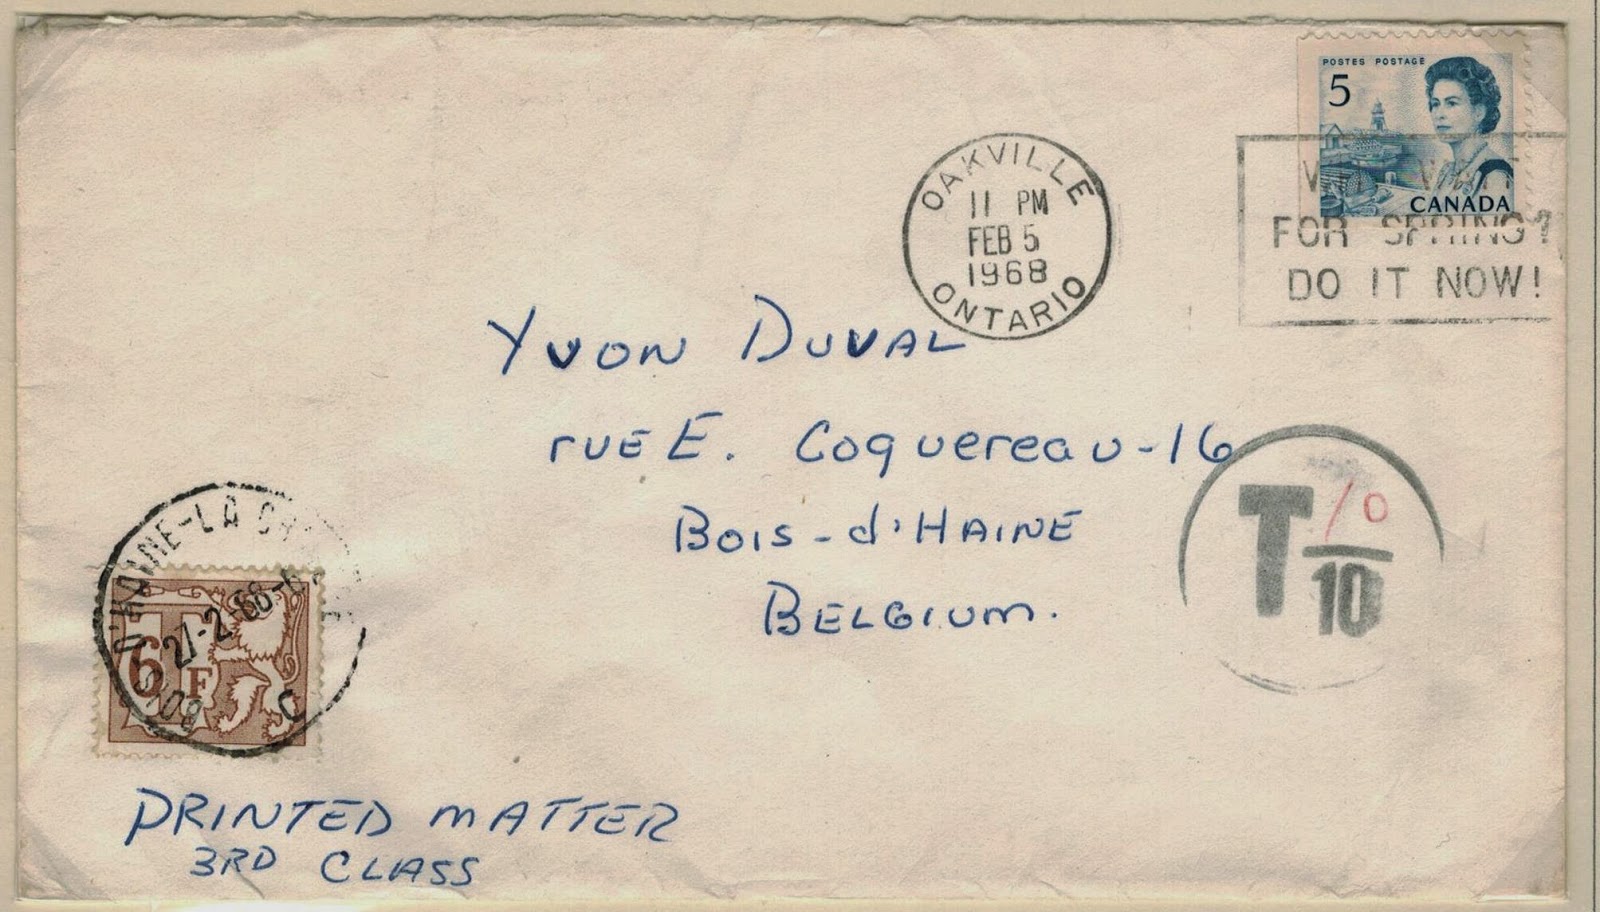 POSTES POSTAGE
5
CANADA
OAKVILLE
11 PM
FEB 5
1968
ONTARIO
WAIT
FOR SPRING?
DO IT NOW!
YVON DUVAL
rUE E. Coquereau-16
BOIS-d'HAINE
BELGIUM.
T 10
10
BOIS D'HAINE-LA
27-2-68
C
T
6 F
PRINTED MATTER
3RD CLASS